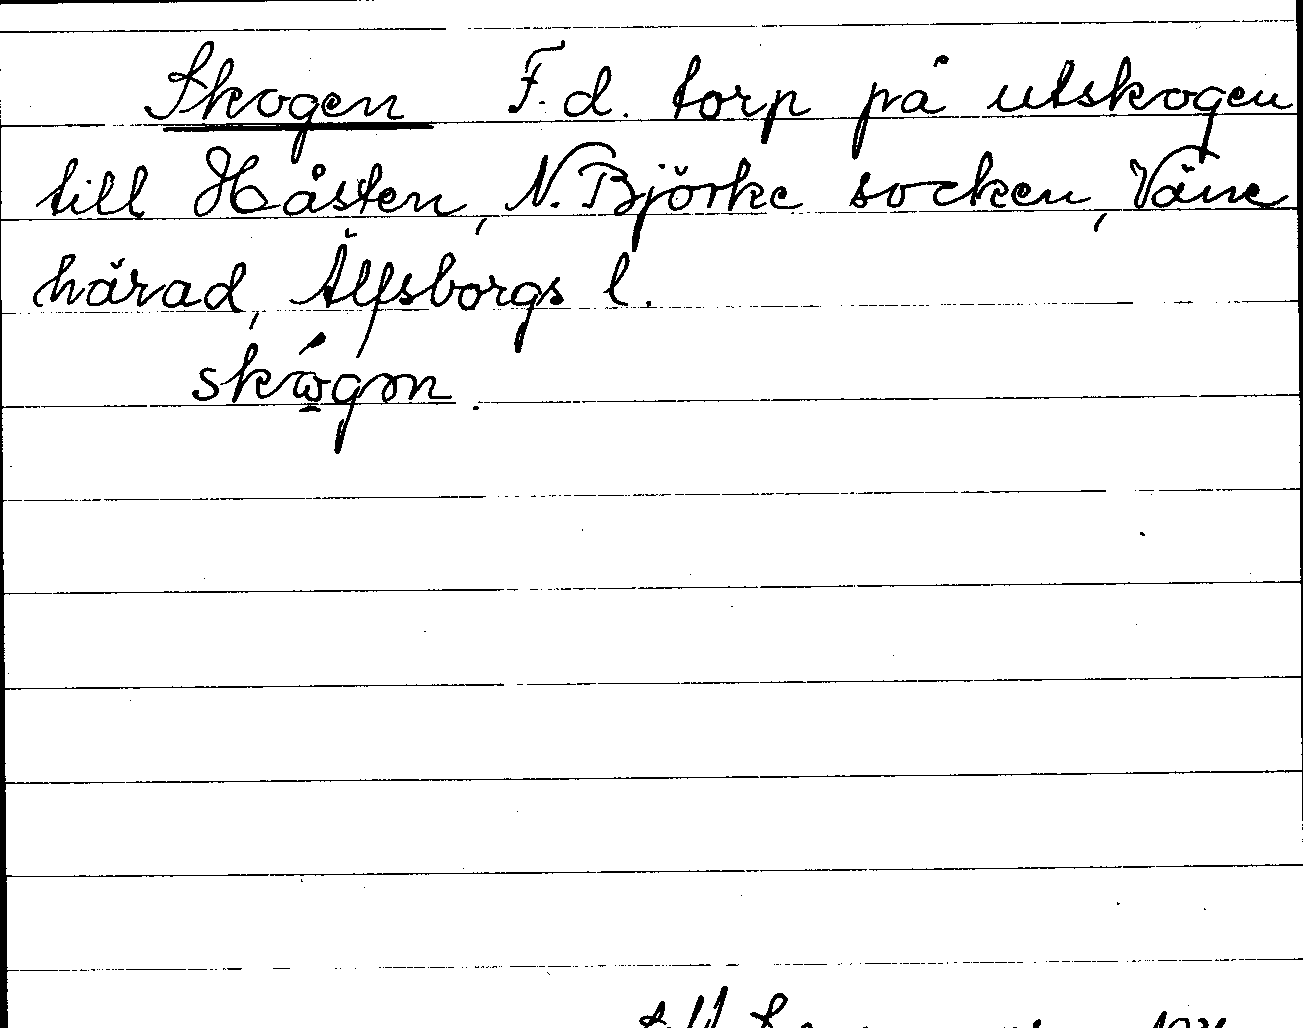 Skogen F.d. torp på utskogen
till Håsten, N. Björke socken, Väne
härad, Älfsborgs l.